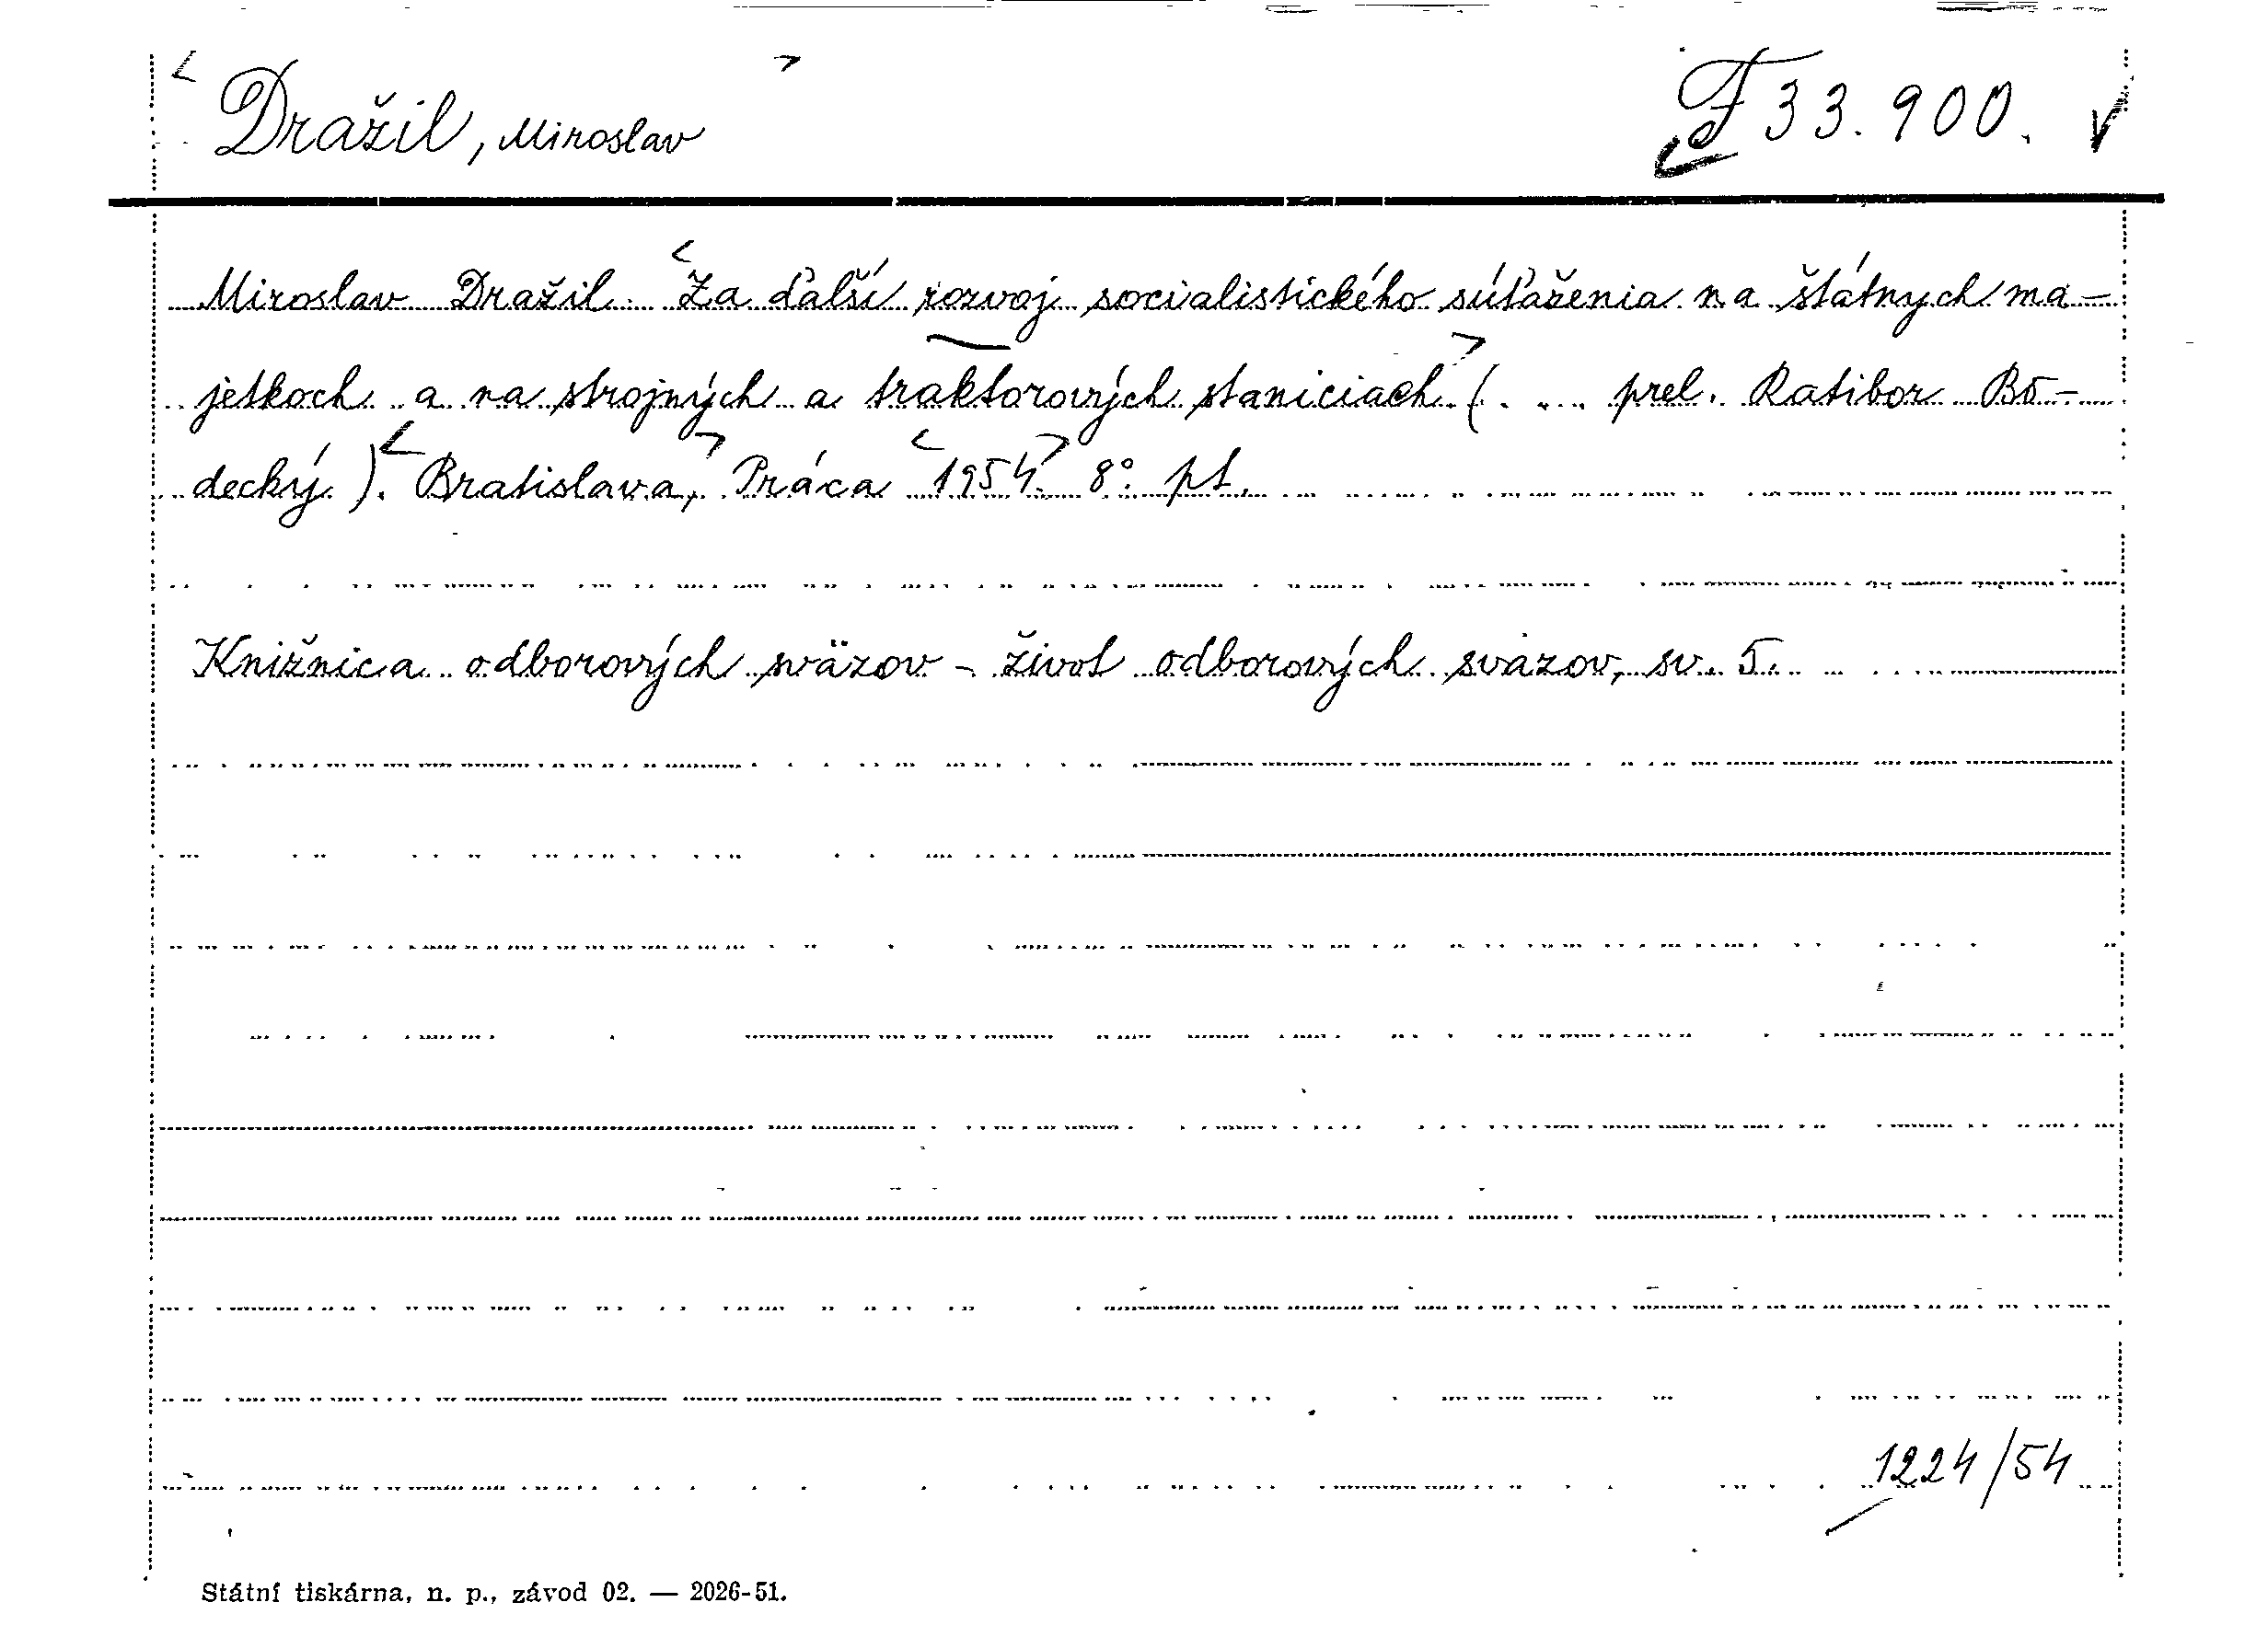 Dražil, Miroslav
F 33.900.
Miroslav Dražil: Za ďalší rozvoj socialistického súťaženia na štátnych ma-
jetkoch a na strojných a traktorových staniciach (. ... prel. Ratibor Bo-
decký). Bratislava, Práca 1954. 8° pt.
Knižnica odborových sväzov - život odborových sväzov, sv. 5.
1224/54
Státní tiskárna, n. p., závod 02. — 2026-51.